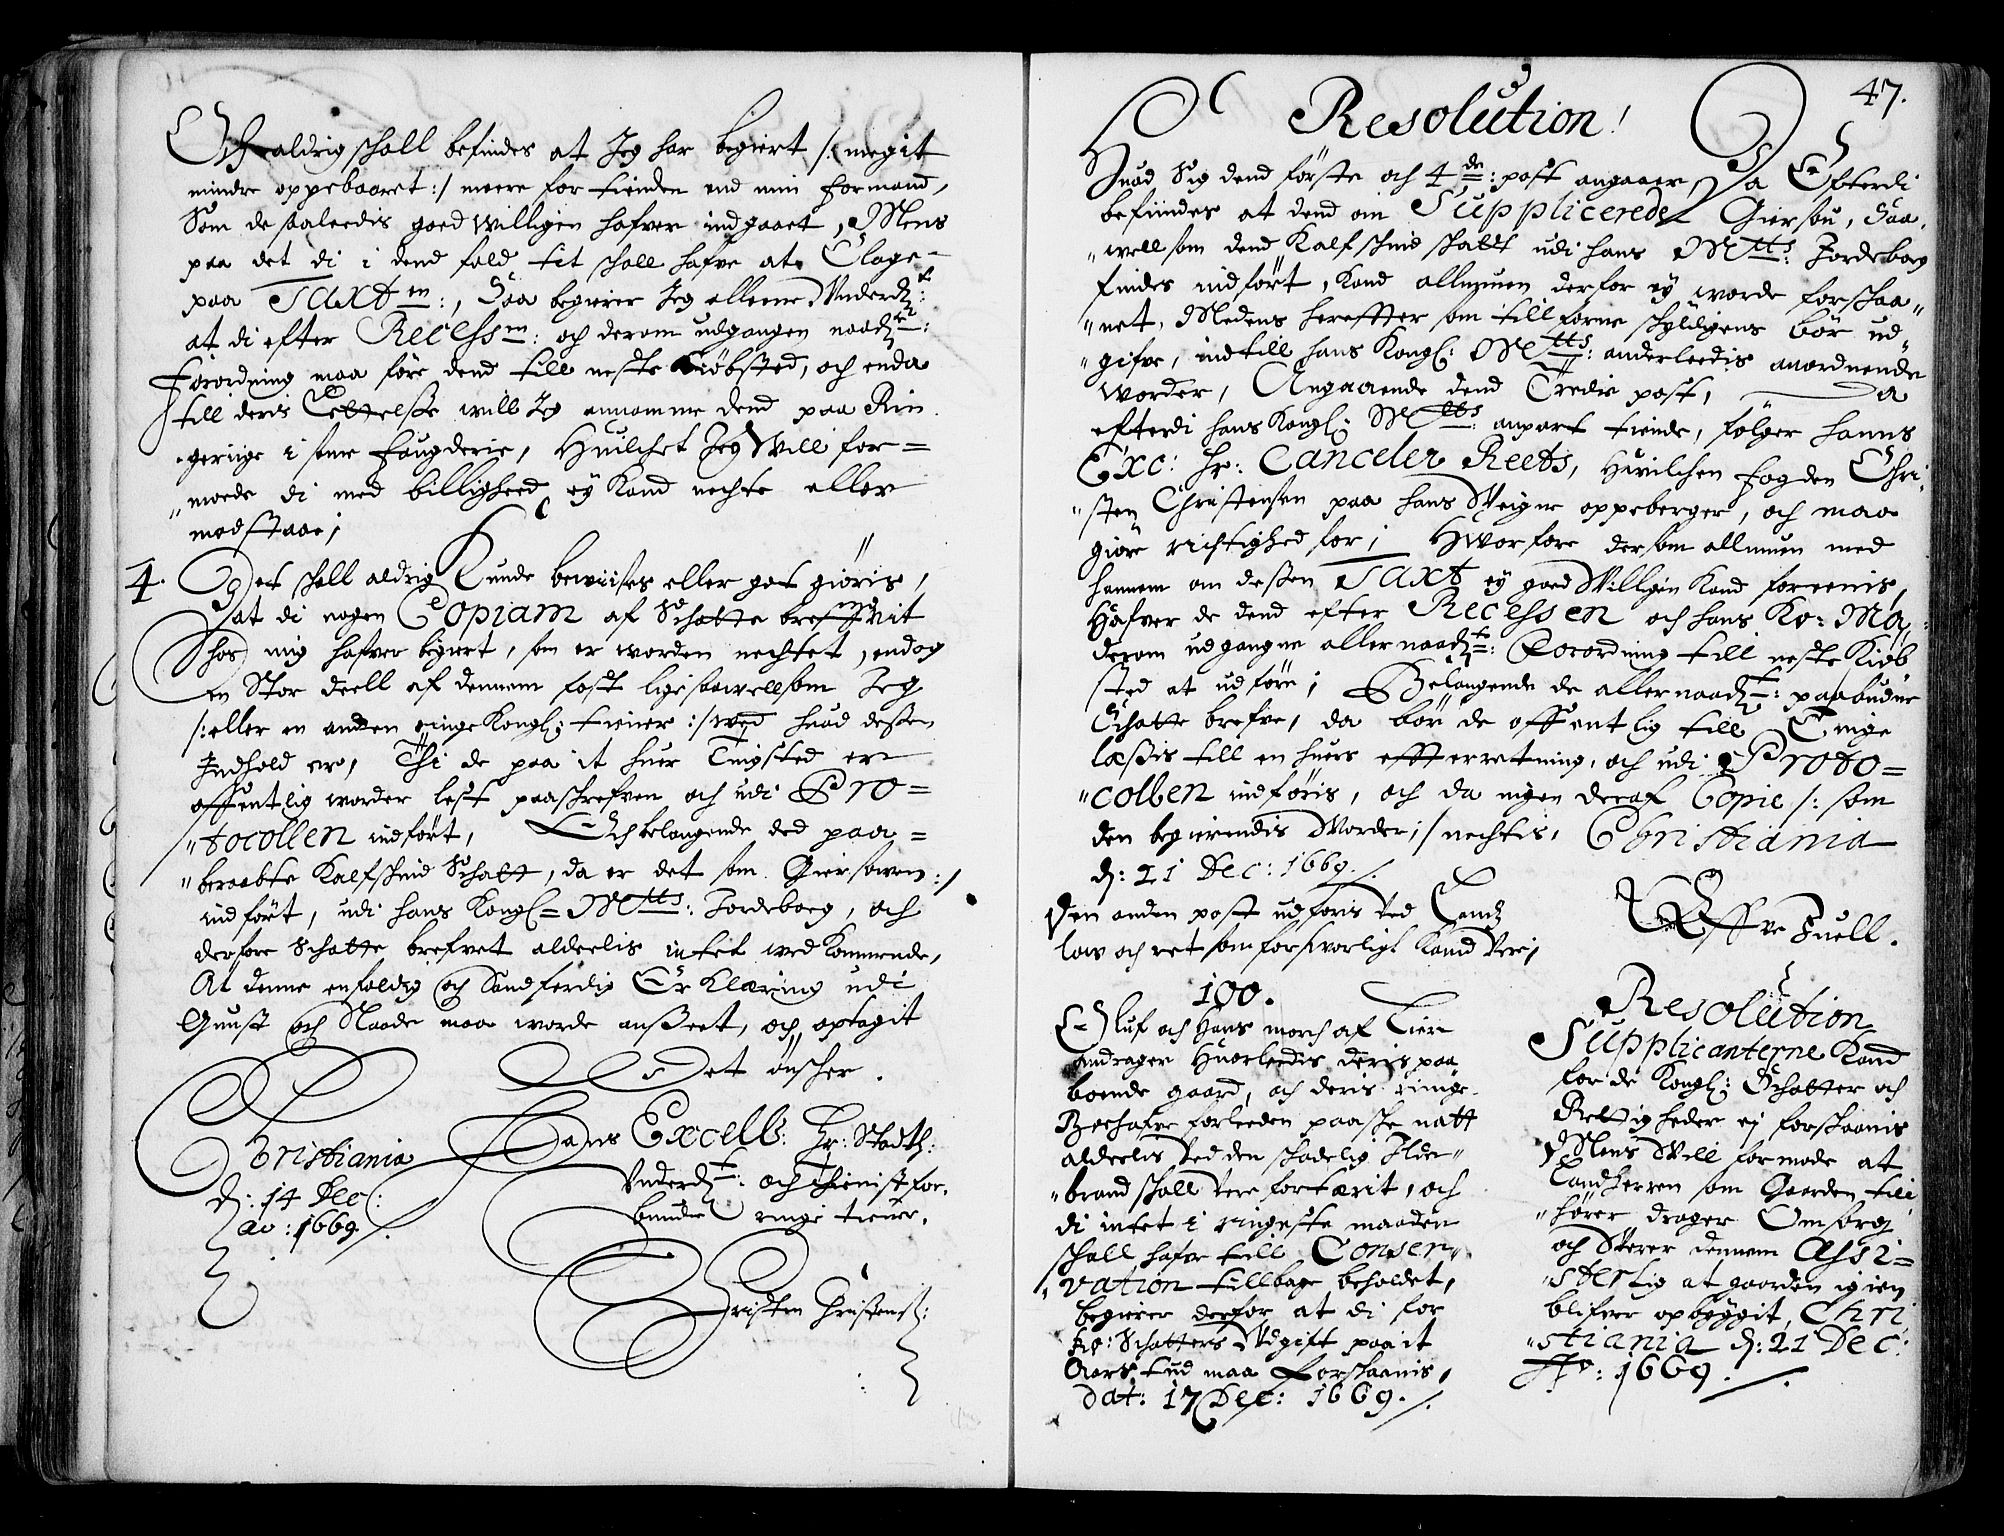 Och aldrig schall befindes at Jeg har begiert /: megit
mindre oppebaaret :/ meere for tienden end min formand,
Som de saaleedis goed willigen hafver indgaaet, Mens
paa det di i dend fald tit schall hafve at Clage
paa Taxt<sup>n</sup>:, Saa begierer Jeg alleene Underd:
at di efter Recess<sup>n</sup>: och derom udgangen naad:
Forordning maa føre dend till neste Kiøbsted, och enda
till deris Lettelsse will Jeg annamme dend paa Rin
gerige i somme fougderie, Huilchet Jeg Will for=
mode di med billighed ey Kand nechte eller
modstaae;
4. Det schall aldrig Kunde bewiises eller got giøris,
at di nogen Copiam af Schatte brefvit
hos mig hafver begiert, som er worden nechtet, endog
en Stor deell af dennem fast ligesaawellsom Jeg
/: eller en anden ringe Kongl: tiener :/ wed huad dessen
Indhold ere, Thi de paa it huer Tingsted er
offentlig worder lest paaschrefven och udi Pro=
tocollen indført, Och belangende ded paa=
beraabte Kalfskind Schatt, da er det som Giersowen :/
indført, udi hans Kongl= M<sup>tts</sup>: Jordebog, och
derfore Schatte brefvet aldeelis intet wed Kommende,
At denne enfoldig och Sandferdig Erklæring udi
Gunst och Naade maa worde ansseet, och optagit
Det ønscher.
Christiania
d: 14 Dec:
ao: 1669 /.
Hans Excell: Hr: Stadth:
Underd: och thienist for,
bundne ringe tiener.
Christen Christens:
47.
Resolution!
Huad Sig dend første och 4<sup>de</sup>: post angaaer, Da Efterdi
befindes at dend om Supplicerede Giersou, Saa
well som dend Kalfschind schatt udi hans M<sup>tts</sup>: Jordeboeg
findes indført, Kand allmuen derfor ey worde forschaa
net, Medens hereffter som tillforne schyldigens bør ud
gifve, indtill hans Kongl: M<sup>tts</sup>: anderleedis anordnende
worder, Angaaende dend Tredie post, Da
efterdi hans Kongl: M<sup>tts</sup>: anpart tiende, følger hanns
Exc: Hr: Canceler Reets, Hwilchen fogden Chri
sten Christensen paa hans Weigne oppeberger, och maa
giøre richtighed for; Hworfore dersom allmuen med
hannem om dessen Taxt ey goed Willigen Kand foreenis,
Hafver de dend efter Recessen och hans Ko: Ma:
derom udgangne allernaad: Forordning till neste Kiøb
sted at udføre; Belangende de allernaad: paabudne
Schatte brefve, da bør de offentlig till Tinge
læssis till en huers effterretning, och udi Proto=
collen indføris, och da ingen deraf Copie /: som
den begierendis Worder; / nechtis, Christiania
d: 21 Dec: 1669. /.
Den anden post udføris ved Landz
low och ret som forsworligt Kand were,
Offve Juell.
100.
Oluf och Hans morch af Lier
andrager Huorleedis deris paa
boende gaard, och deris ringe
Boehafve forleeden paasche natt
aldeelis ved den schadelig Ilde
brand schall vere fortærit, och
di intet i ringeste maaden
schall hafve till Conser
vation tillbage beholdet,
begierer derfor at di for
Ko: Schatters Udgift paa it
Aars tid maa Forschaanis,
Dat: 17 Dec: 1669. /.
Resolution
Supplicanterne Kand
for de Kongl: Schatter och
Rettigheder ej forschaanis
Mens Will formode at
Landherren som Gaarden till
hører drager Omsorg
och Werer dennem Assi=
sterlig at gaarden igien
blifver opbyggit, Chri
stiania d: 21 Dec:
Ao: 1669. /.